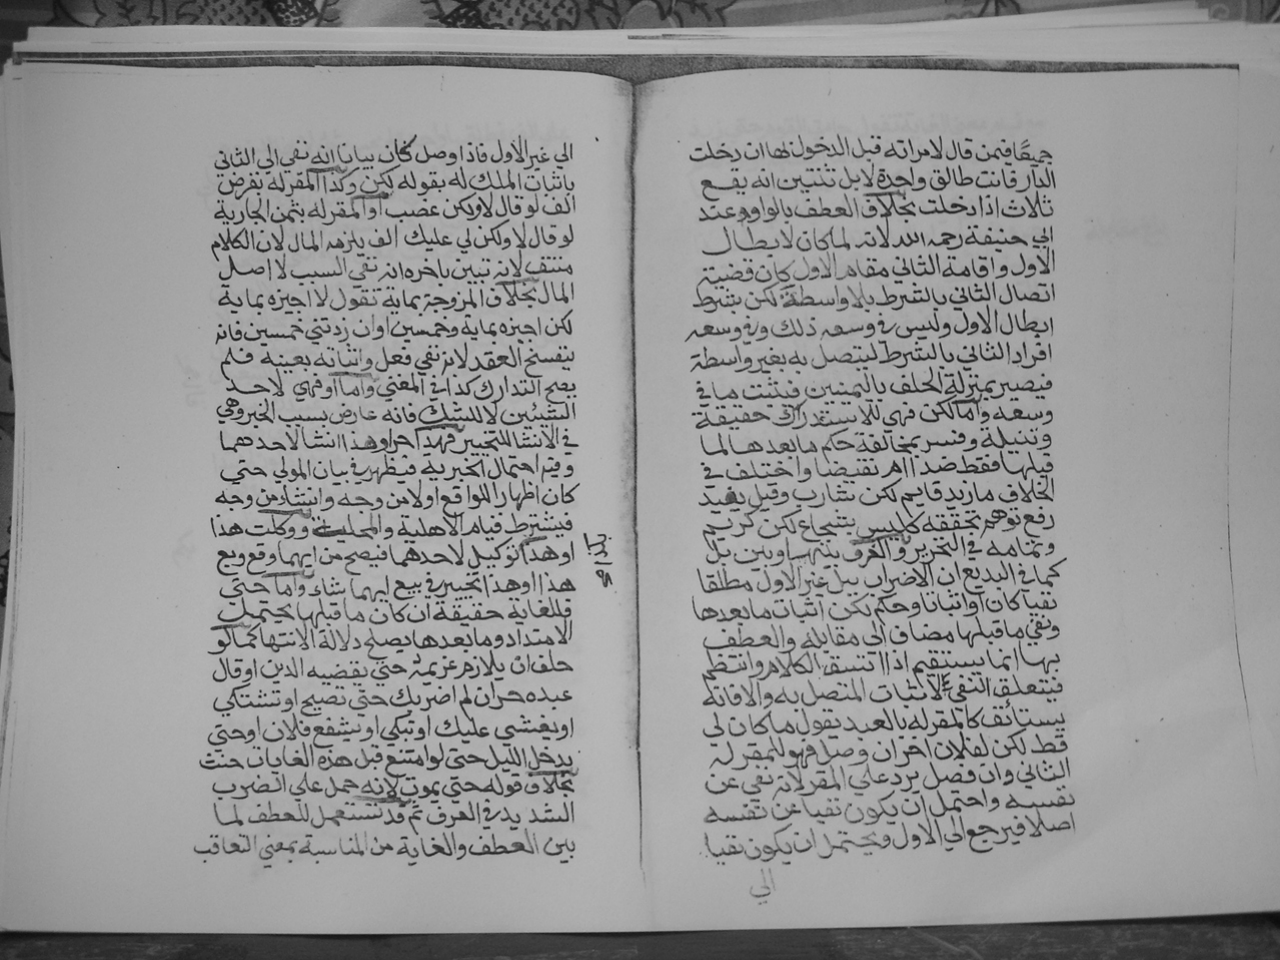 جميعًا فيمن قال لامراته قبل الدخول بها ان دخلت
الدار فانت طالق واحدة لا بل ثنتين انه يقع
ثلاث اذا دخلت بخلاف العطف بالواو وعند
ابي حنيفة رحمه الله لانه لما كان لابطال
الاول واقامة الثاني مقام الاول كان قضيته
اتصال الثاني بالشرط بلا واسطة لكن بشرط
ابطال الاول وليس في وسعه ذلك وفي وسعه
افراد الثاني بالشرط ليتصل به بغير واسطة
فيصير بمنزلة الحلف باليمينين فيثبت ما في
وسعه واما لكن فهي للاستدراك حقيقة
وفسر بمخالفة حكم ما بعدها لما
قبلها فقط ضدا ام نقيضا واختلف في
الخلاف ما زيد قايم لكن شارب وقيل يفيد
رفع توهم تحققه كليس بشجاع لكن كريم
وتمامه في التحرير والفرق بينها وبين بل
كما في البديع ان الاضراب ببل عن الاول مطلقا
نفيا كان او اثباتا وحكم لكن اثبات ما بعدها
ونفي ما قبلها مضاف الى مقابله والعطف
بها انما يستقيم اذا اتسق الكلام وانتظم
فيتعلق النفي بالاثبات المتصل به والا فانه
يستأنف كالمقر له بالعبد يقول ما كان لي
قط لكن لفلان اخر ان وصل فهو للمقر له
الثاني وان فصل يرد علي المقر لانه نفي عن
نفسه واحتمل ان يكون نفيا عن نفسه
اصلا فيرجع الي الاول ويحتمل ان يكون نفيا
الي
الي غير الاول فاذا وصل كان بيانا انه نفي الي الثاني
باثبات الملك له بقوله لكن وكذا المقر له بقرض
الف لو قال لا ولكن غصب او المقر له بثمن الجارية
لو قال لا ولكن لي عليك الف يلزمه المال لان الكلام
متفق لانه تبين باخره انه نفي السبب لا اصل
المال بخلاف المزوجة بماية تقول لا اجيزه بماية
لكن اجيزه بماية وخمسين او ان زدتني خمسين فانه
ينفسخ العقد لانه نفي فعل واثباته بعينه فلم
يصح التدارك كذا في المغني واما او فهي لاحد
الشيئين لا للشك فانه عارض بسبب الخبر وهي
في الانشا للتخيير فهذا حر او هذا انشا لاحدهما
وفيه احتمال الخبرية فيظهر في بيان المولي حتي
كان اظهارا للواقع اولا من وجه وانشاء من وجه
فيشترط قيام الاهلية والمحلية ووكلت هذا
او هذا توكيل لاحدهما فيصح من ايهما وقع وبع
هذا او هذا تخيير في بيع ايهما شاء واما حتى
فللغاية حقيقة ان كان ما قبلها يحتمل
الامتداد وما بعدها يصلح دلالة الانتها كما لو
حلف ان يلازم غريمه حتي يقضيه الدين او قال
عبده حر ان لم اضربك حتي تصيح او تشتكي
او يغشي عليك او تبكي او يشفع فلان او حتي
يدخل الليل حتى لو امتنع قبل هذه الغايات حنث
بخلاف قوله حتي يموت لانه حمل علي الضرب
الشديد في العرف ثم قد تستعمل للعطف لما
بين العطف والغاية من المناسبة بمعني التعاقب